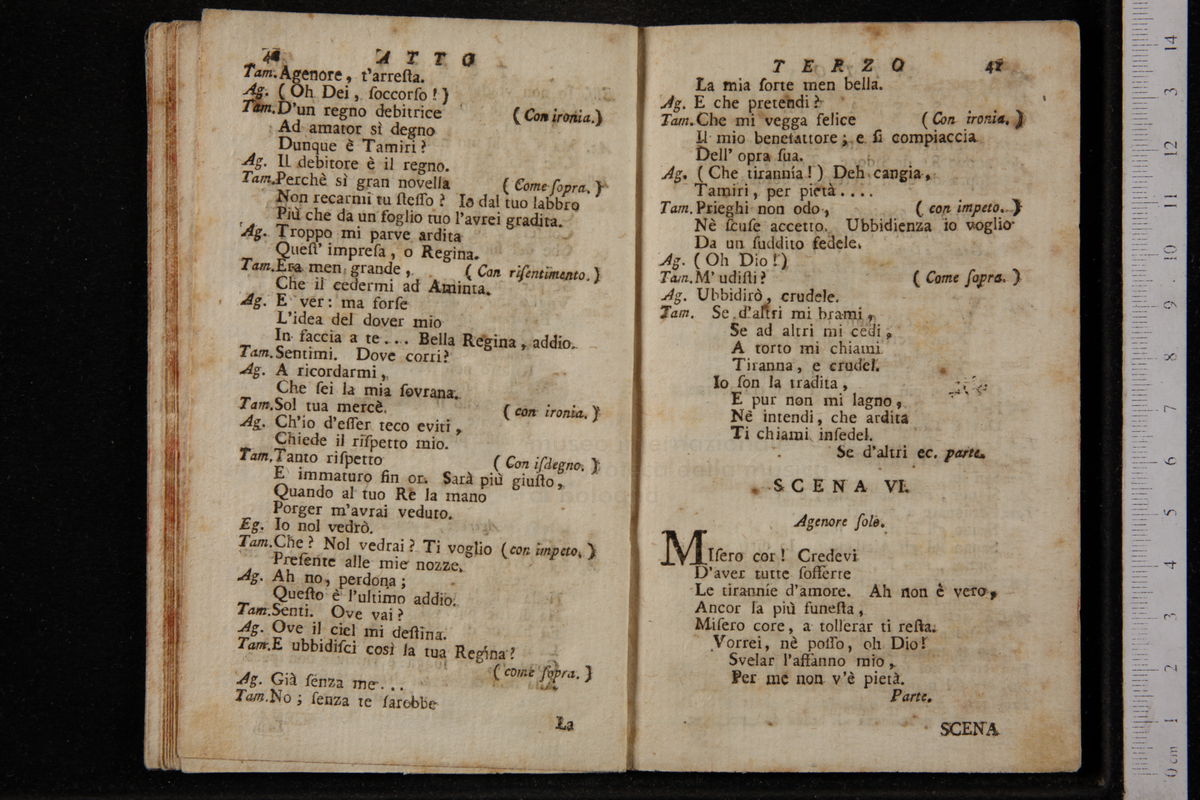 ATTO
Tam. Agenore, t'arreſta.
Ag. (Oh Dei, ſoccorſo!)
Tam. D'un regno debitrice (Con ironia.)
Ad amator sì degno
Dunque è Tamiri?
Ag. Il debitore è il regno.
Tam. Perchè sì gran novella (Come ſopra.)
Non recarmi tu ſteſſo? Io dal tuo labbro
Più che da un foglio tuo l'avrei gradita.
Ag. Troppo mi parve ardita
Queſt' impreſa, o Regina.
Tam. Era men grande, (Con riſentimento.)
Che il cedermi ad Aminta.
Ag. E ver: ma forſe
L'idea del dover mio
In faccia a te... Bella Regina, addio.
Tam. Sentimi. Dove corri?
Ag. A ricordarmi,
Che ſei la mia ſovrana.
Tam. Sol tua mercè. (con ironia.)
Ag. Ch'io d'eſſer teco eviti,
Chiede il riſpetto mio.
Tam. Tanto riſpetto (Con iſdegno.)
E' immaturo fin or. Sarà più giuſto,
Quando al tuo Re la mano
Porger m'avrai veduto.
Eg. Io nol vedrò.
Tam. Che? Nol vedrai? Ti voglio (con impeto.)
Preſente alle mie nozze.
Ag. Ah no, perdona;
Queſto è l'ultimo addio.
Tam. Senti. Ove vai?
Ag. Ove il ciel mi deſtina.
Tam. E ubbidiſci così la tua Regina?
(come ſopra.)
Ag. Già ſenza me...
Tam. No; ſenza te ſarebbe
La
TERZO 41
La mia ſorte men bella.
Ag. E che pretendi?
Tam. Che mi vegga felice (Con ironia.)
Il mio benefattore; e ſi compiaccia
Dell' opra ſua.
Ag. (Che tirannía!) Deh cangia,
Tamiri, per pietà....
Tam. Prieghi non odo, (con impeto.)
Nè ſcuſe accetto. Ubbidienza io voglio
Da un ſuddito fedele.
Ag. (Oh Dio!)
Tam. M' udiſti? (Come ſopra.)
Ag. Ubbidirò, crudele.
Tam. Se d'altri mi brami,
Se ad altri mi cedi,
A torto mi chiami
Tiranna, e crudel.
Io ſon la tradita,
E pur non mi lagno,
Nè intendi, che ardita
Ti chiami infedel.
Se d'altri ec. parte.
SCENA VI.
Agenore ſolo.
MIſero cor! Credevi
D'aver tutte ſofferte
Le tiranníe d'amore. Ah non è vero,
Ancor la più funeſta,
Miſero core, a tollerar ti reſta.
Vorrei, nè poſſo, oh Dio!
Svelar l'affanno mio,
Per me non v'è pietà.
Parte.
SCENA